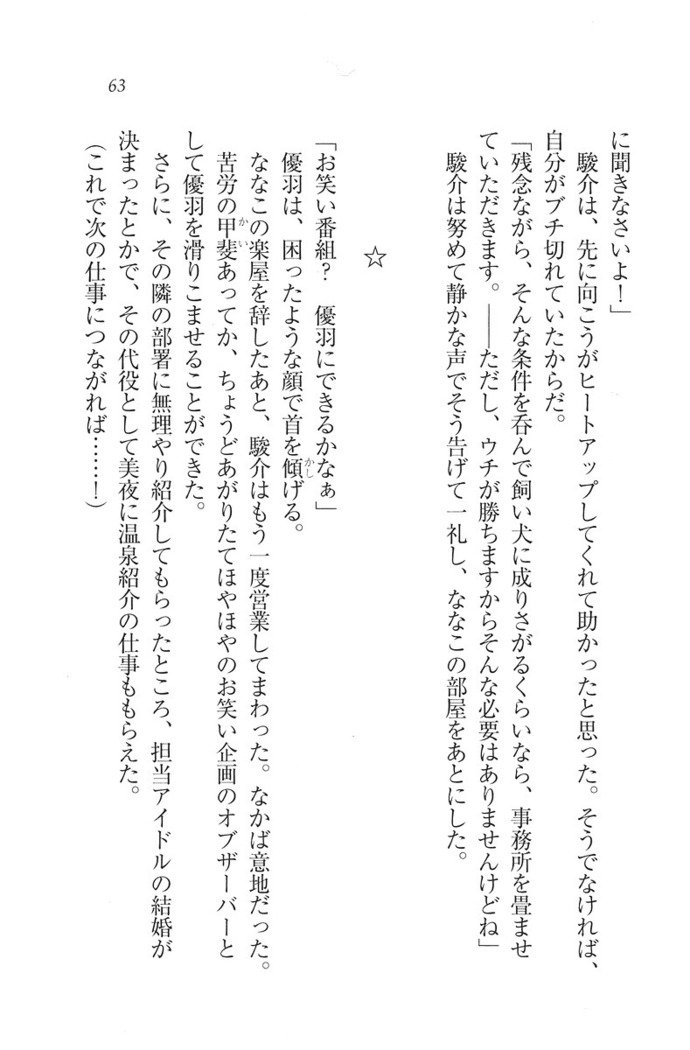 63
に聞きなさいよ！」
　駿介は、先に向こうがヒートアップしてくれて助かったと思った。そうでなければ、
自分がブチ切れていたからだ。
「残念ながら、そんな条件を呑んで飼い犬に成りさがるくらいなら、事務所を畳ませ
ていただきます。――ただし、ウチが勝ちますからそんな必要はありませんけどね」
　駿介は努めて静かな声でそう告げて一礼し、ななこの部屋をあとにした。
☆
「お笑い番組？　優羽にできるかなぁ」
　優羽は、困ったような顔で首を傾かしげる。
　ななこの楽屋を辞したあと、駿介はもう一度営業してまわった。なかば意地だった。
　苦労の甲斐かいあってか、ちょうどあがりたてほやほやのお笑い企画のオブザーバーと
して優羽を滑りこませることができた。
　さらに、その隣の部署に無理やり紹介してもらったところ、担当アイドルの結婚が
決まったとかで、その代役として美夜に温泉紹介の仕事ももらえた。
（これで次の仕事につながれば……！）